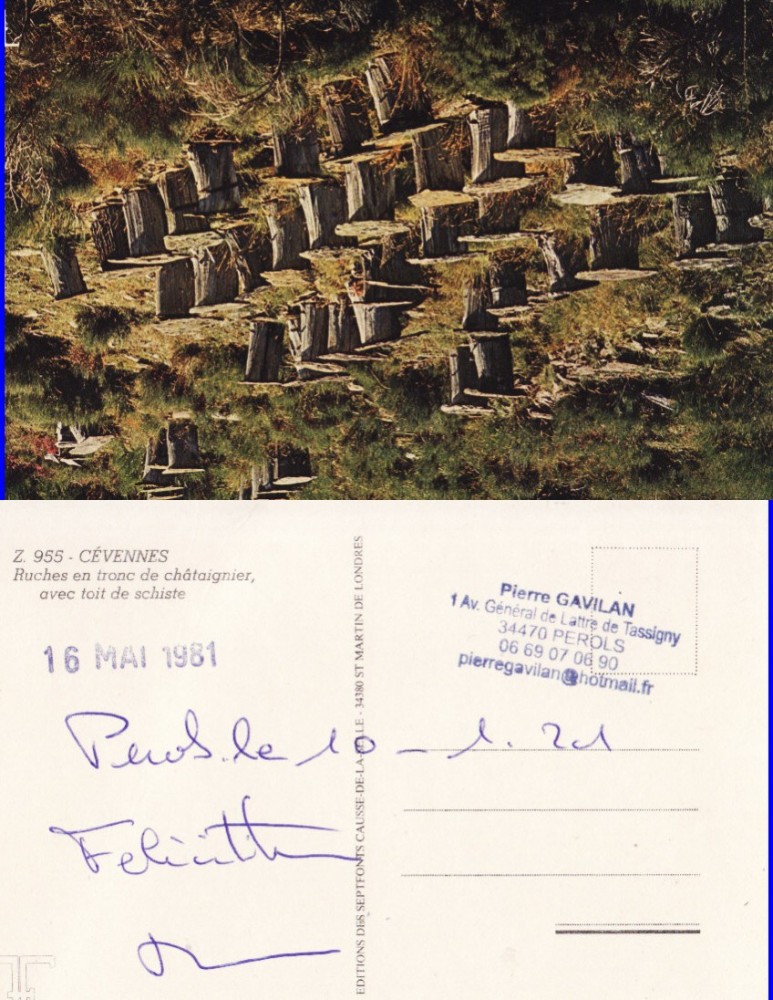 Z. 955 - CÉVENNES
Ruches en tronc de châtaignier,
avec toit de schiste
16 MAI 1981
EDITIONS DES SEPTFONTS CAUSSE-DE-LA-SELLE - 34380 ST MARTIN DE LONDRES
Pierre GAVILAN
1 Av. Général de Lattre de Tassigny
34470 PEROLS
06 69 07 06 90
pierregavilan@hotmail.fr
Perols. le 10 - 1. 21